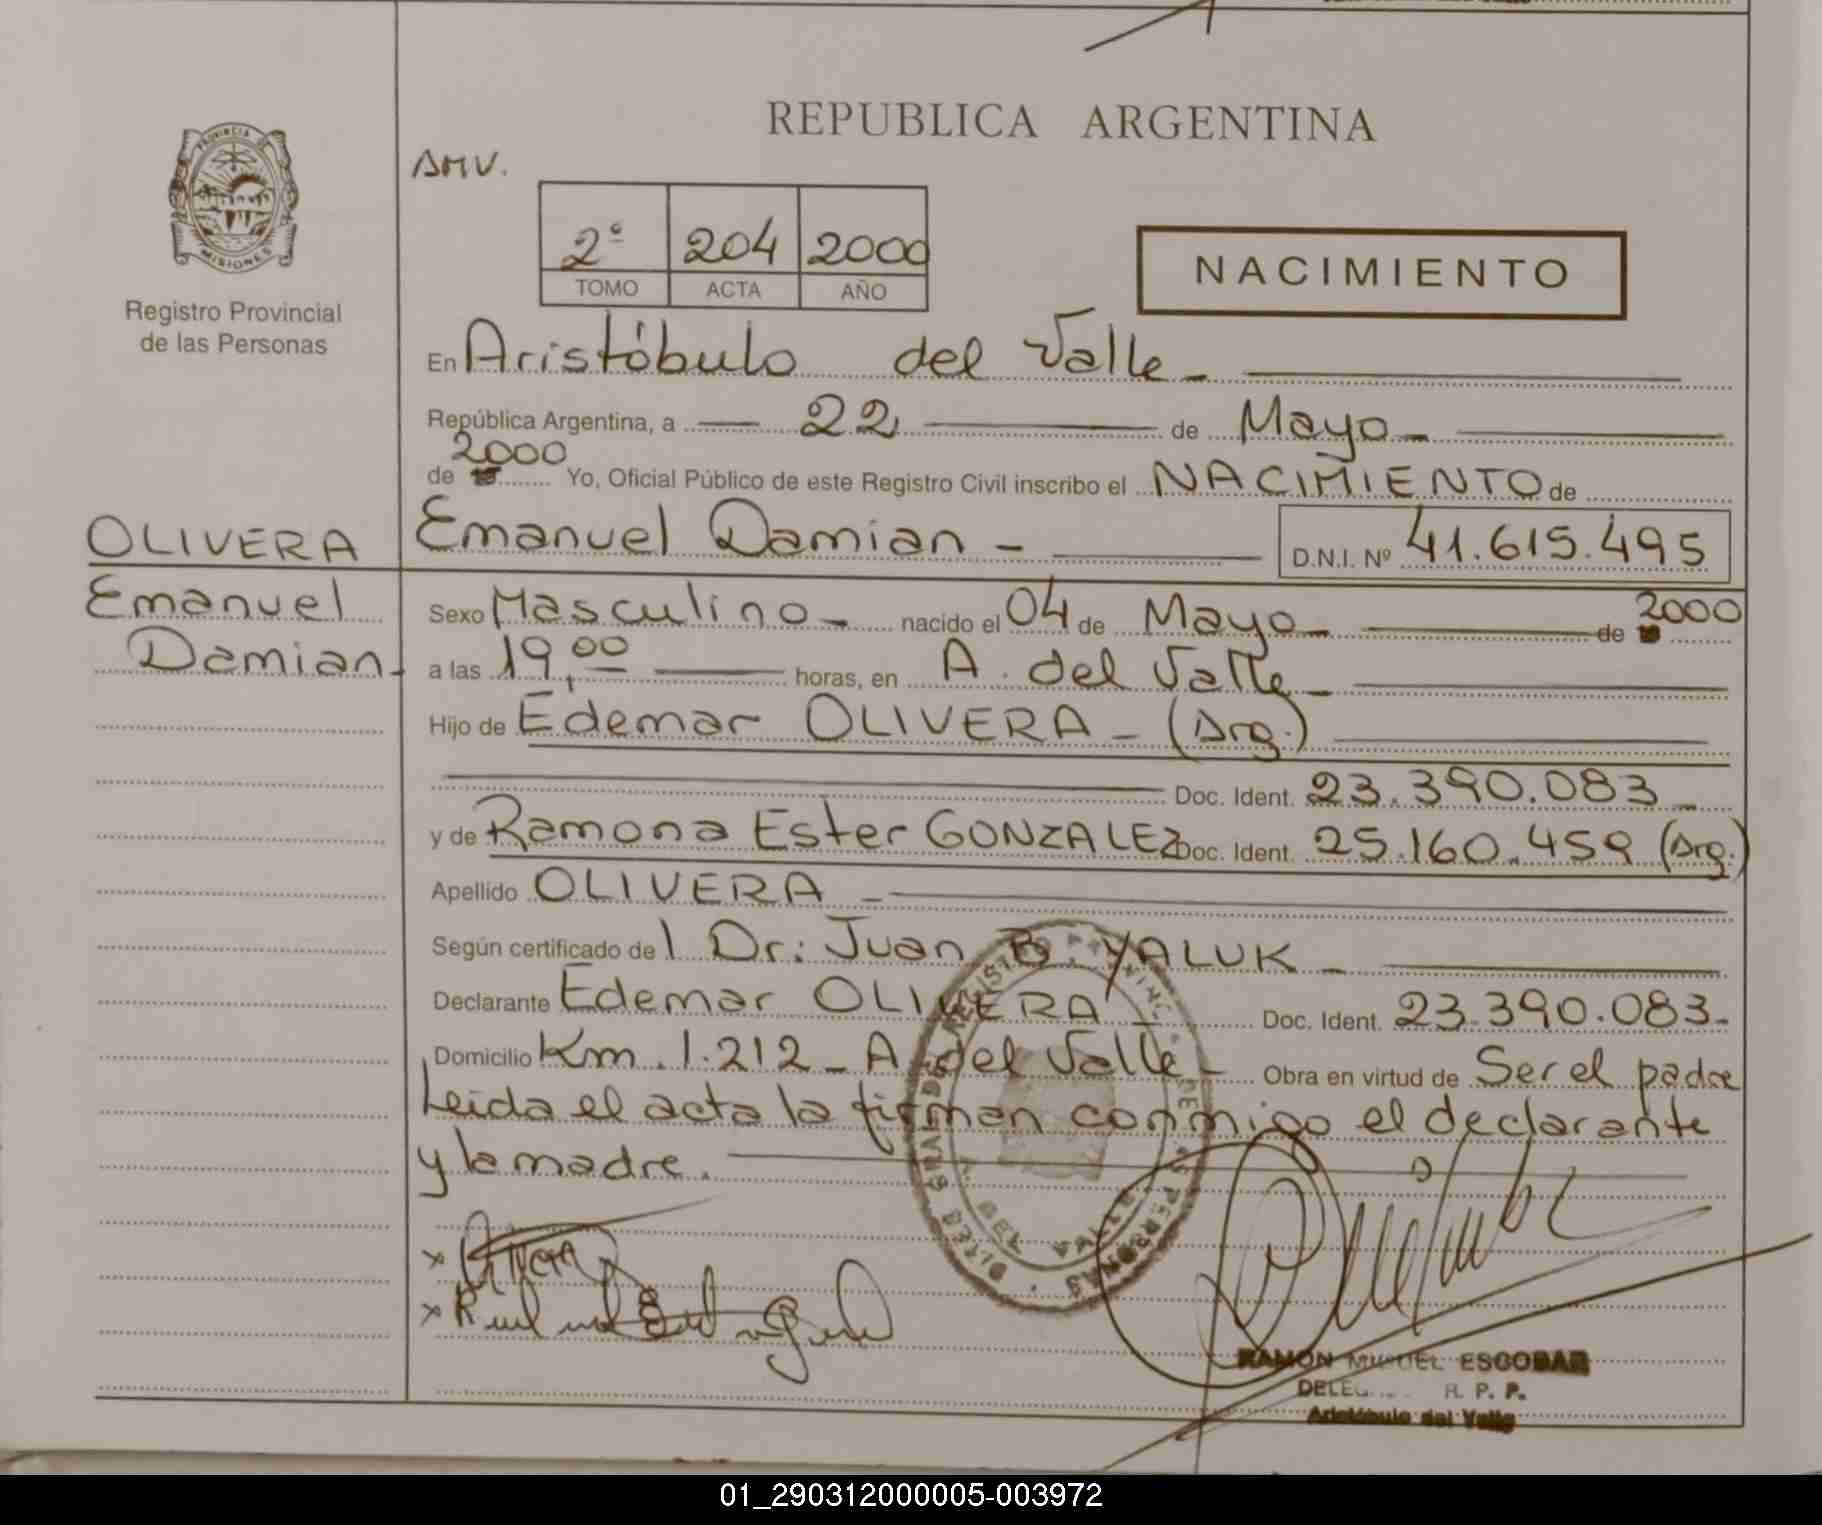 REPUBLICA ARGENTINA
PROVINCIA DE
MISIONES
Registro Provincial
de las Personas
AMV.
2º 204 2000
TOMO ACTA AÑO
NACIMIENTO
En Aristóbulo del Valle -
República Argentina, a 22 de Mayo -
de 2000 Yo, Oficial Público de este Registro Civil inscribo el NACIMIENTO de
OLIVERA Emanuel Damian - D.N.I. Nº 41.615.495
Emanuel
Damian -
Sexo Masculino - nacido el 04 de Mayo - de 2000
a las 19,00 horas, en A. del Valle -
Hijo de Edemar OLIVERA - (Arg.)
Doc. Ident. 23.390.083 -
y de Ramona Ester GONZALEZ Doc. Ident. 25.160.459 (Arg.)
Apellido OLIVERA -
Según certificado del Dr: Juan B. YALUK -
Declarante Edemar OLIVERA - Doc. Ident. 23.390.083-
Domicilio Km. 1.212 - A. del Valle - Obra en virtud de Ser el padre
Leida el acta la firman conmigo el declarante
y la madre.
RAMON MIGUEL ESCOBAR
R. P. P.
Aristóbulo del Valle
01_290312000005-003972